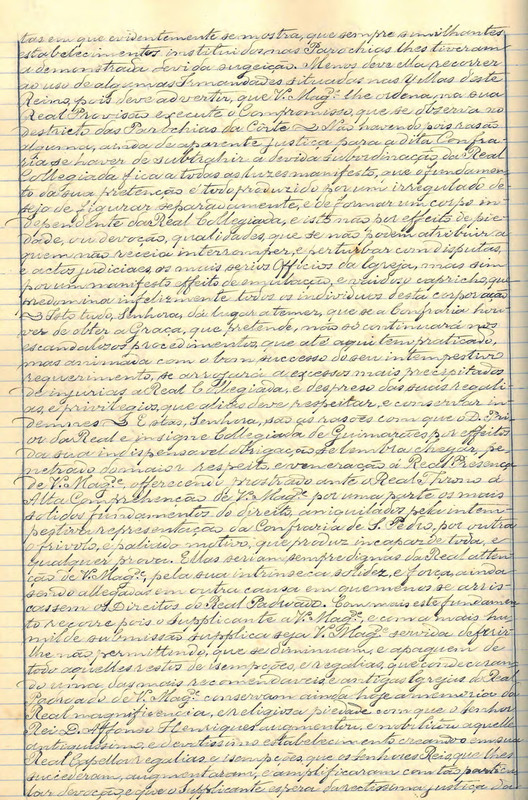 tas em que evidentemente se mostra, que sempre similhantes
estabelecimentos instituidos nas Parochias lhes tiveram
a demonstrada devida sugeição. Menos deve ella recorrer
ao uso de algumas Irmandades situadas nas Villas deste
Reino, pois deve advertir, que V. Magᵉ. lhe ordena, na sua
Real Provisão execute o Compromisso, que se observa no
destricto das Parochias da Côrte Não havendo pois rasão
alguma, ainda de apparente justiça para a dita Confra-
ria se haver de subtrahir á devida subordinação da Real
Collegiada, fica a todas as luzes manifesto, que o fundamen-
to da sua pretenção é todo produzido por um irregulado de-
sejo de figurar separadamente, e de formar um corpo in-
dependente da Real Collegiada, e isto não por effeito de pie-
dade, ou devoção, qualidades, que se não podem attribuir a
quem não receia interromper, e perturbar com disputas,
e actos judiciaes, os mais serios Officios da Igreja, mas sim
por um manifesto effeito de emulação, e vaidoso capricho, que
predomina infelismente todos os individuos desta corporação
Isto tudo, Senhora, dá lugar a temer, que se a Confraria hou-
ver de obter a Graça, que pretende, não só continuará nos
escandalozos procedimentos, que até aqui tem praticado,
mas animada com o bom successo do seu intempestivo
requerimento, se arrojará a excessos mais precipitados
de injurias á Real Collegiada, e despreso das suas regali-
as, e privilegios, que aliás deve respeitar, e conservar in-
demnes Estas, Senhora, são as rasões com que o D. Pri-
or da Real e insigne Collegiada de Guimarães por effeitos
da sua indispensavel obrigação se lembra chegar, pe-
netrado do maior respeito, e veneração á Real Presença
de V. Magᵉ., offerecendo prostrado ante o Real Throno á
Alta Comprehenção de V. Magᵉ. por uma parte os mais
solidos fundamentos do direito, aniquilados pela intem-
pestiva representação da Confraria de S. Pedro, por outra
o frivolo, e paliado motivo, que produz incapaz de toda, e
qualquer prova. Ellas seriam sempre dignas da Real atten-
ção de V. Magᵉ., pela sua intrinseca solidez, e força, ainda
sendo allegadas em outra causa em que menos se arris-
cassem os Direitos do Real Padroado. Com mais este fundamen-
to recorre pois o supplicante a V. Magᵉ., e com a mais hu-
milde submissão supplica seja V. Magᵉ. servida deferir-
lhe não permittindo, que se diminuam, e apaguem de
todo aquelles restos de isempções, e regalias, que condecoran-
do uma das mais recomendaveis e antigas Igrejas do Real
Padroado de V. Magᵉ. conservam ainda hoje a memoria da
Real magnificencia, e religiosa piedade com que o Senhor
Rei D. Affonso Henriques augmentou, e nobilitou aquelle
antiquissimo, e devotissimo estabelecimento creando em sua
Real Capella regalias e isempções, que os Senhores Reis, que lhes
succederam, augmentaram, e amplificaram com tão particu-
lar devoção, e que o Supplicante espera da rectissima justiça da